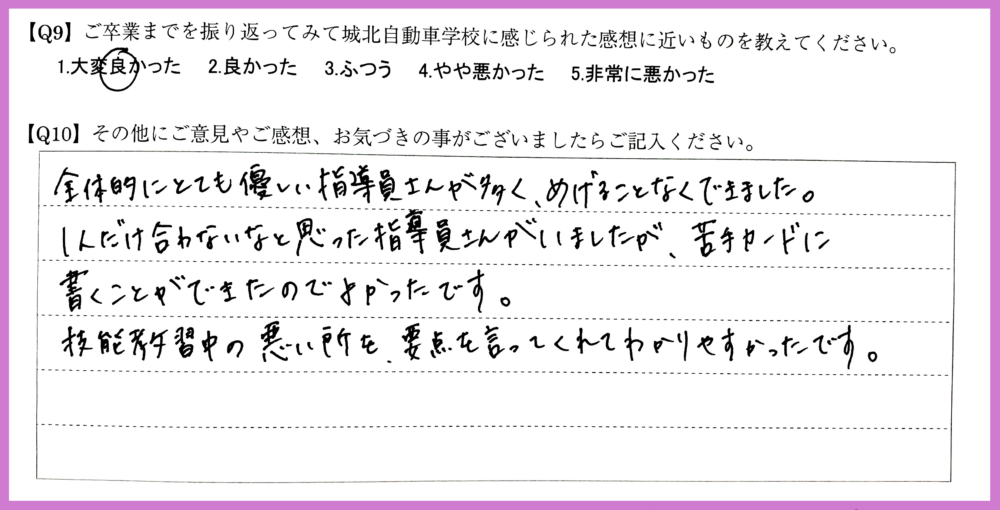 【Q9】ご卒業までを振り返ってみて城北自動車学校に感じられた感想に近いものを教えてください。
1.大変良かった 2.良かった 3.ふつう 4.やや悪かった 5.非常に悪かった
【Q10】その他にご意見やご感想、お気づきの事がございましたらご記入ください。
全体的にとても優しい指導員さんが多く、めげることなくできました。
1人だけ合わないなと思った指導員さんがいましたが、苦手カードに
書くことができたのでよかったです。
技能教習中の悪い所を、要点を言ってくれてわかりやすかったです。